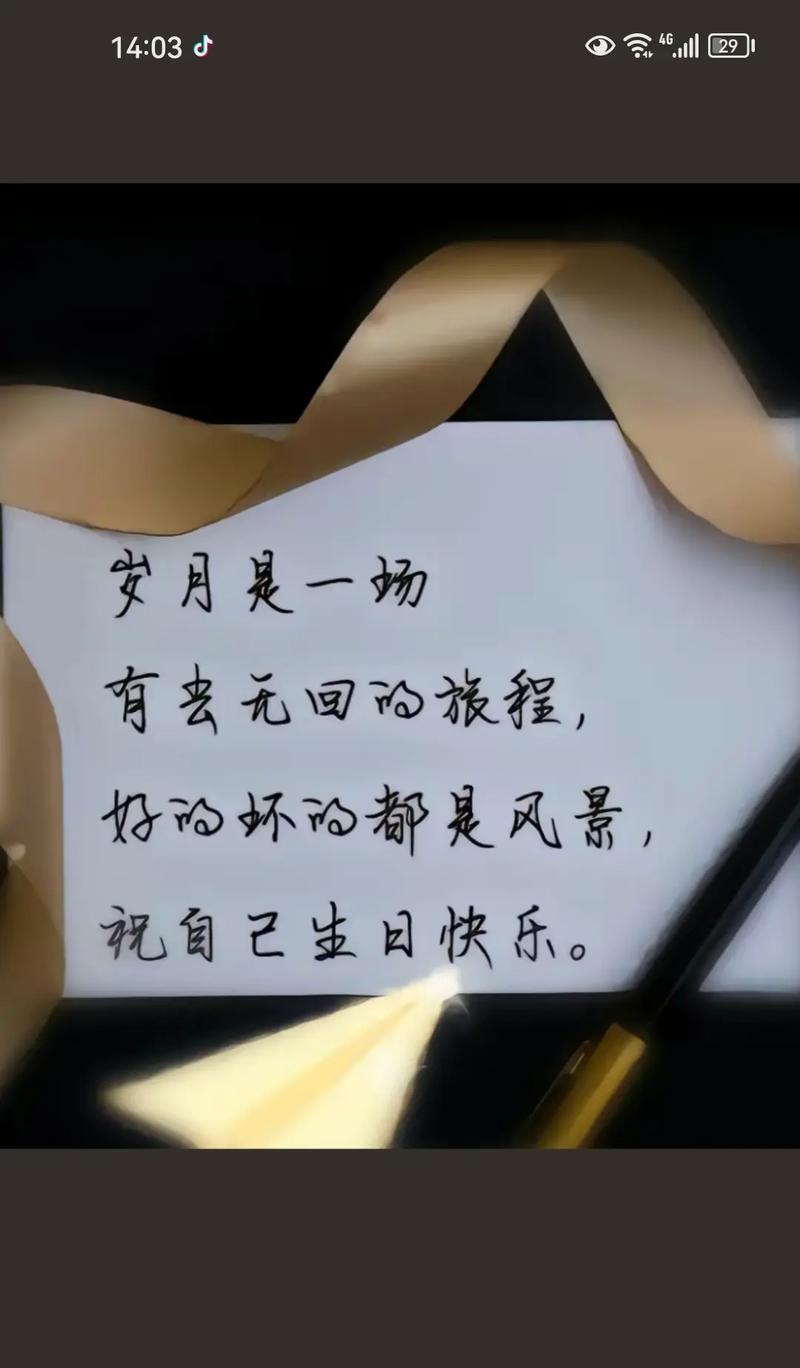 14:03
4G
29
岁月是一场
有去无回的旅程,
好的坏的都是风景,
祝自己生日快乐。